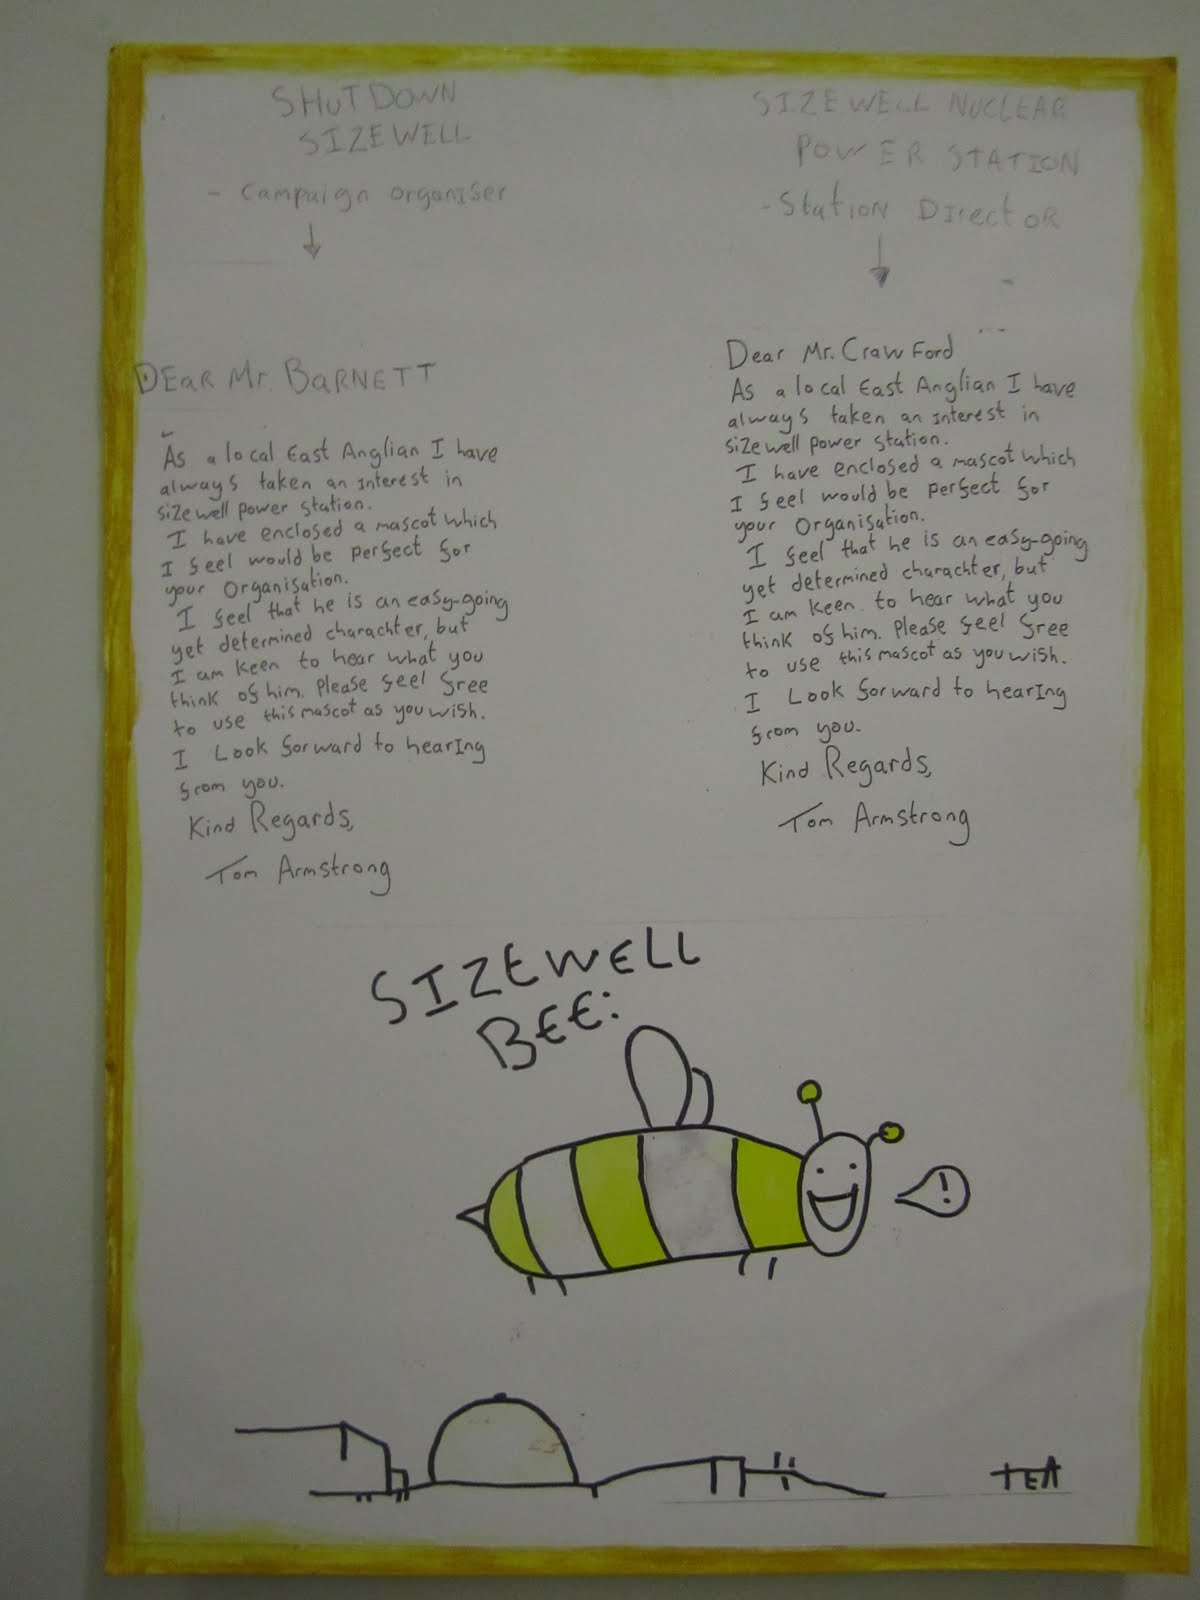 SHUT DOWN
SIZEWELL
- Campaign organiser
DEar Mr. BARNETT
As a local East Anglian I have
always taken an interest in
sizewell power station.
I have enclosed a mascot which
I feel would be perfect for
your Organisation.
I feel that he is an easy-going
yet determined charachter, but
I am keen to hear what you
think of him. Please feel free
to use this mascot as you wish.
I Look forward to hearing
from you.
Kind Regards,
Tom Armstrong
SIZEWELL NUCLEAR
POWER STATION
- Station Director
Dear Mr. Crawford
As a local East Anglian I have
always taken an interest in
sizewell power station.
I have enclosed a mascot which
I feel would be perfect for
your Organisation.
I feel that he is an easy-going
yet determined charachter, but
I am keen to hear what you
think of him. Please feel free
to use this mascot as you wish.
I Look forward to hearing
from you.
Kind Regards,
Tom Armstrong
SIZEWELL
BEE:
!
TEA